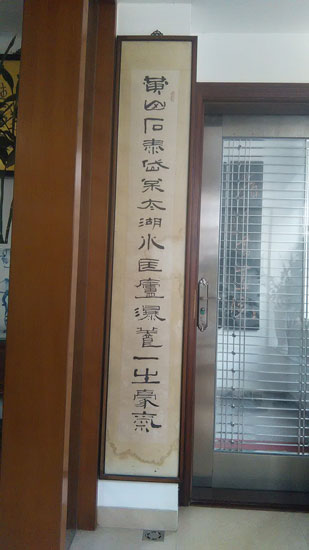 黄山石泰岱太湖水匡廬瀑一生豪氣